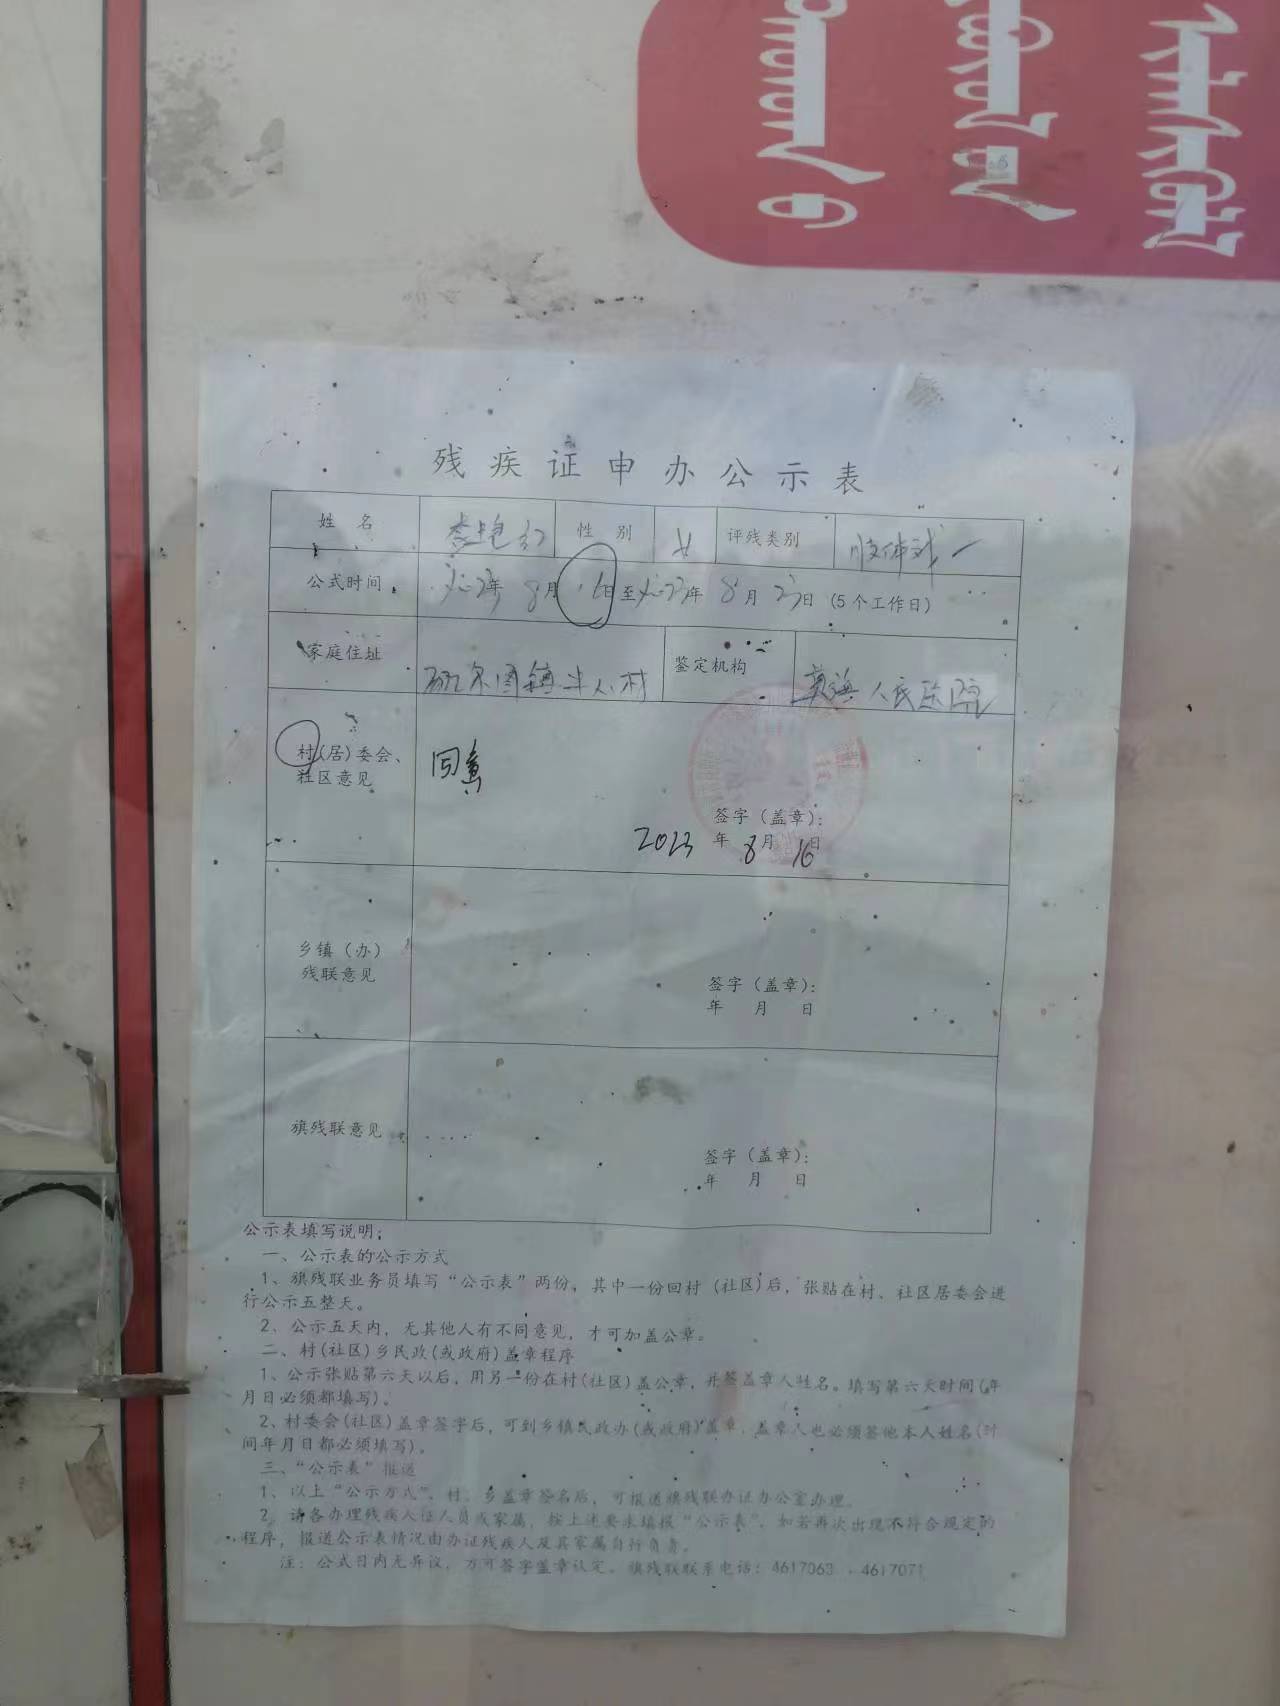 残疾证申办公示表
姓 名 李艳红 性 别 女 评残类别 肢体贰
公式时间 2023年 8月 16日至2023年 8月 23日 (5个工作日)
家庭住址 鉴定机构 人民医院
村(居)委会、
社区意见
同意
签字（盖章）：
2023 年 8 月 16 日
乡镇（办）
残联意见
签字（盖章）：
年 月 日
旗残联意见
签字（盖章）：
年 月 日
公示表填写说明：
一、公示表的公示方式
1、旗残联业务员填写“公示表”两份，其中一份回村（社区）后，张贴在村、社区居委会进
行公示五整天。
2、公示五天内，无其他人有不同意见，才可加盖公章。
二、村(社区)乡民政(或政府)盖章程序
1、公示张贴第六天以后，用另一份在村(社区)盖公章，并签盖章人姓名。填写第六天时间(年
月日必须都填写)。
2、村委会(社区)盖章签字后，可到乡镇民政办(或政府)盖章，盖章人也必须签他本人姓名(时
间年月日都必须填写)。
三、“公示表”报送
1、以上“公示方式”、村、乡盖章签名后，可报送旗残联办证办公室办理。
2、请各办理残疾人证人员或家属，按上述要求填报“公示表”，如若再次出现不符合规定的
程序，报送公示表情况由办证残疾人及其家属自行负责。
注：公式日内无异议，方可签字盖章认定。旗残联联系电话：4617063 、4617071